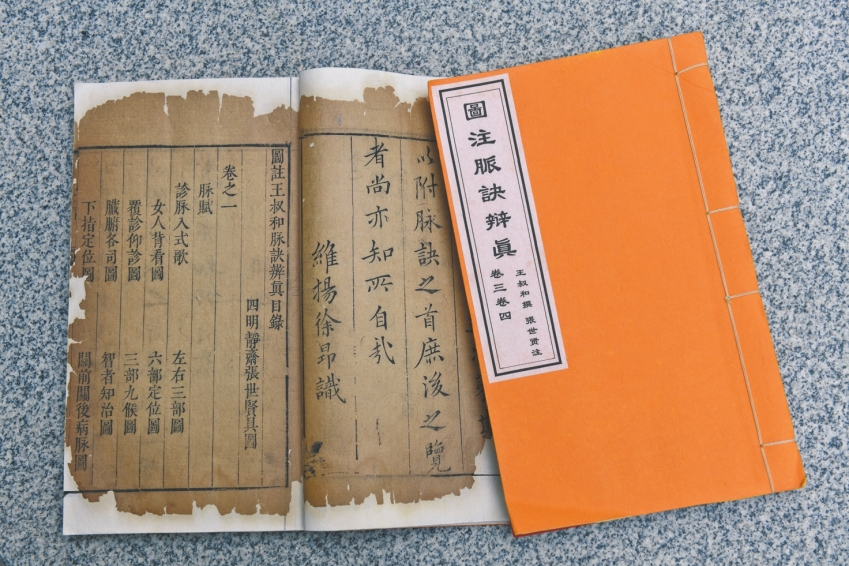 圖注脈訣辯眞
王叔和撰 張世贤注
卷三卷四
以附脉訣之首庶後之覽
者尚亦知所自哉
維揚徐昂識
圖註王叔和脉訣辨眞目錄
四明靜齋張世賢具圖
卷之一
脉賦
診脉入式歌 左右三部圖
女人背看圖 六部定位圖
覆診仰診圖 三部九候圖
臟腑各司圖 智者知治圖
下指定位圖 關前關後病脉圖